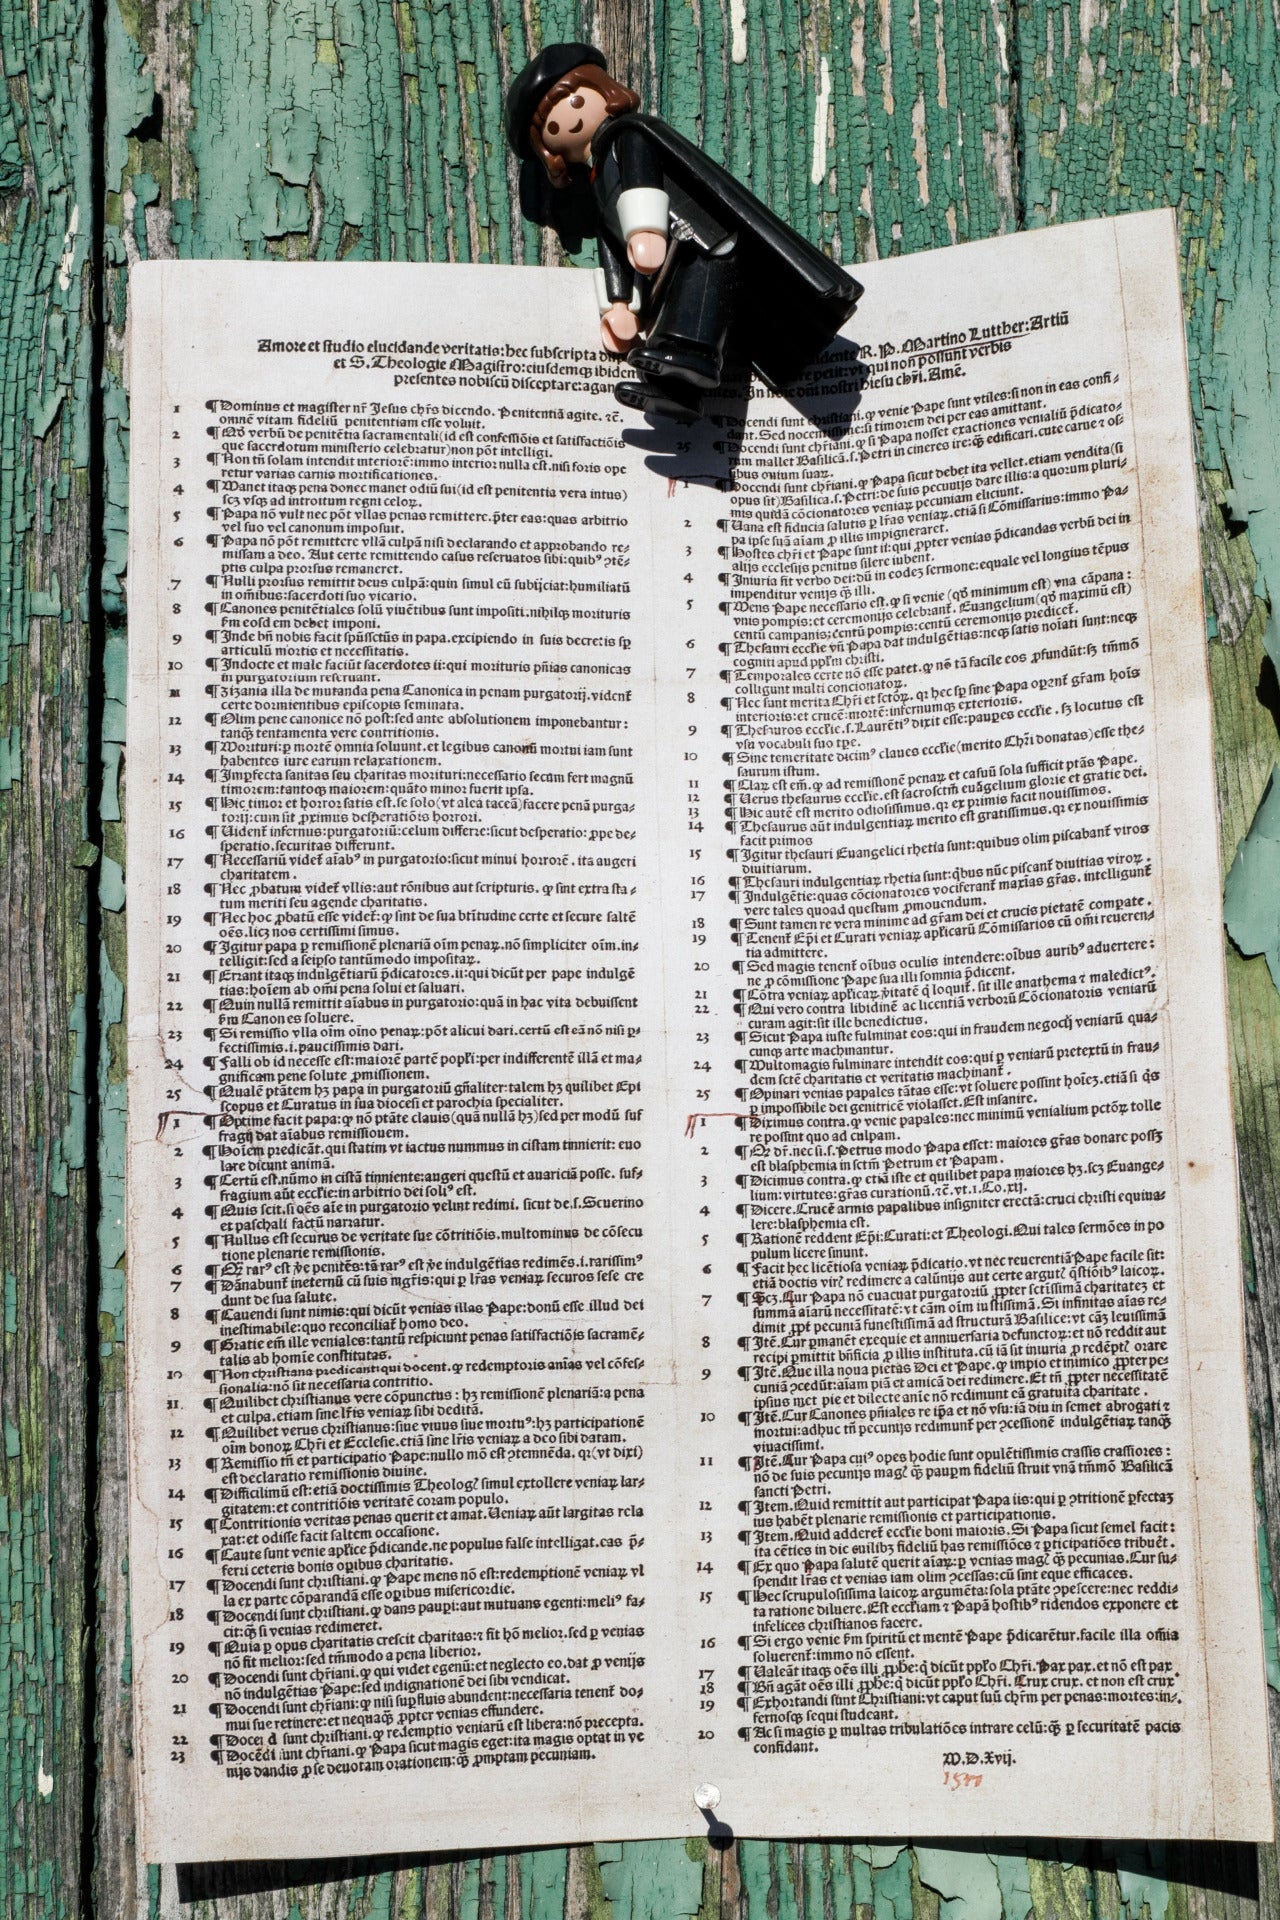 Amore et studio elucidande veritatis: hec subscripta
dente R. P. Martino Lutther: Artiū
et S. Theologie Magistro: eiusdemqȝ ibidem
petit: vt qui non possunt verbis
presentes nobiscū disceptare: agan
In noīe dñi nostri hiesu chr̄i. Amē.
1 ¶ Dominus et magister nr̄ Jesus chr̄s dicendo. Penitentiā agite. ⁊c̄.
omnē vitam fideliū penitentiam esse voluit.
2 ¶ Qd̄ verbū de penitētia sacramentali (id est confessiōis et satisfactiōis
que sacerdotum ministerio celebratur) non pōt intelligi.
3 ¶ Non tn̄ solam intendit interiorē: immo interior nulla est. nisi foris ope
retur varias carnis mortificationes.
4 ¶ Manet itaqȝ pena donec manet odiū sui (id est penitentia vera intus)
scȝ vsqȝ ad introitum regni celoꝝ.
5 ¶ Papa nō vult nec pōt vllas penas remittere. p̄ter eas: quas arbitrio
vel suo vel canonum imposuit.
6 ¶ Papa nō pōt remittere vllā culpā nisi declarando et approbando re-
missam a deo. Aut certe remittendo casus reseruatos sibi: quibꝰ ꝯtē-
ptis culpa prorsus remaneret.
7 ¶ Nulli prorsus remittit deus culpā: quin simul eū subijciat: humiliatū
in oībus: sacerdoti suo vicario.
8 ¶ Canones penitētiales solū viuētibus sunt impositi. nihilqȝ morituris
s̄m eosdem debet imponi.
9 ¶ Inde bn̄ nobis facit spūssctūs in papa. excipiendo in suis decretis sp̄
articulū mortis et necessitatis.
10 ¶ Indocte et male faciūt sacerdotes ii: qui morituris pn̄ias canonicas
in purgatorium reseruant.
11 ¶ Zizania illa de mutanda pena Canonica in penam purgatorij. vident̄
certe dormientibus episcopis seminata.
12 ¶ Olim pene canonice nō post: sed ante absolutionem imponebantur:
tanqȝ tentamenta vere contritionis.
13 ¶ Morituri: ꝑ mortē omnia soluunt. et legibus canonū mortui iam sunt
habentes iure earum relaxationem.
14 ¶ Imꝑfecta sanitas seu charitas morituri: necessario secum fert magnū
timorem: tantoqȝ maiorem: quāto minor fuerit ipsa.
15 ¶ Hic timor et horror satis est. se solo (vt alea taceā) facere penā purga-
torij: cum sit ꝓximus desꝑatiōis horrori.
16 ¶ Uident̄ infernus: purgatoriū: celum differre: sicut desperatio: ꝓpe de-
speratio. securitas differunt.
17 ¶ Necessariū videt̄ aīabꝰ in purgatorio: sicut minui horrorē. ita augeri
charitatem.
18 ¶ Nec ꝓbatum videt̄ vllis: aut rōnibus aut scripturis. ꝙ sint extra sta-
tum meriti seu agende charitatis.
19 ¶ Nec hoc ꝓbatū esse videt̄: ꝙ sint de sua btītudine certe et secure saltē
oēs. licȝ nos certissimi simus.
20 ¶ Igitur papa ꝑ remissionē plenariā oīm penaꝝ. nō simpliciter oīm. in-
telligit: sed a seipso tantūmodo impositaꝝ.
21 ¶ Errant itaqȝ indulgētiarū p̄dicatores. ii: qui dicūt per pape indulgē
tias: hoīem ab om̄i pena solui et saluari.
22 ¶ Quin nullā remittit aīabus in purgatorio: quā in hac vita debuissent
s̄m Canones soluere.
23 ¶ Si remissio vlla oīm oīno penaꝝ: pōt alicui dari. certū est eā nō nisi ꝑ-
fectissimis. i. paucissimis dari.
24 ¶ Falli ob id necesse est: maiorē partē popl̄i: per indifferentē illā et ma-
gnificam pene solute ꝓmissionem.
25 ¶ Qualē ptātem hȝ papa in purgatoriū gn̄aliter: talem hȝ quilibet Epi
scopus et Curatus in sua diocesi et parochia specialiter.
1 ¶ Optime facit papa: ꝙ nō ptāte clauis (quā nullā hȝ) sed per modū suf
fragij dat aīabus remissionem.
2 ¶ Hoīem predicāt. qui statim vt iactus nummus in cistam tinnierit: euo
lare dicunt animā.
3 ¶ Certū est. nūmo in cistā tinniente: augeri questū et auariciā posse. suf-
fragium aūt eccl̄ie: in arbitrio dei soliꝰ est.
4 ¶ Quis scit. si oēs aīe in purgatorio velint redimi. sicut de. s. Seuerino
et paschali factū narratur.
5 ¶ Nullus est securus de veritate sue cōtritiōis. multominus de cōsecu
tione plenarie remissionis.
6 ¶ Qȝ rarꝰ est v̄e penitēs: tā rarꝰ est v̄e indulgētias redimēs. i. rarissimꝰ
7 ¶ Dānabunt̄ ineternū cū suis mgr̄is: qui ꝑ lr̄as veniaꝝ securos sese cre
dunt de sua salute.
8 ¶ Cauendi sunt nimis: qui dicūt venias illas Pape: donū esse illud dei
inestimabile: quo reconciliat̄ homo deo.
9 ¶ Gratie em̄ ille veniales: tantū respiciunt penas satisfactiōis sacramē-
talis ab homīe constitutas.
10 ¶ Non christiana predicant: qui docent. ꝙ redemptoris aīas vel cōfes-
sionalia: nō sit necessaria contritio.
11. ¶ Quilibet christianus vere cōpunctus: hȝ remissionē plenariā: a pena
et culpa. etiam sine lr̄is veniaꝝ sibi debitā.
12 ¶ Quilibet verus christianus: siue viuus siue mortuꝰ: hȝ participationē
oīm bonoꝝ Chr̄i et Ecclesie. etiā sine lr̄is veniaꝝ a deo sibi datam.
13 ¶ Remissio tn̄ et participatio Pape: nullo mō est ꝯtemnēda. qꝛ (vt dixi)
est declaratio remissionis diuine.
14 ¶ Difficilimū est: etiā doctissimis Theologꝭ simul extollere veniaꝝ lar-
gitatem: et contritiōis veritatē coram populo.
15 ¶ Contritionis veritas penas querit et amat. Ueniaꝝ aūt largitas rela
xat: et odisse facit saltem occasione.
16 ¶ Caute sunt venie apl̄ice p̄dicande. ne populus false intelligat. eas p̄-
ferri ceteris bonis oꝑibus charitatis.
17 ¶ Docendi sunt christiani. ꝙ Pape mens nō est: redemptionē veniaꝝ vl
la ex parte cōparandā esse oꝑibus misericordie.
18 ¶ Docendi sunt christiani. ꝙ dans pauꝑi: aut mutuans egenti: meliꝰ fa-
cit: qȝ si venias redimeret.
19 ¶ Quia ꝑ opus charitatis crescit charitas: ⁊ fit hō melior. sed ꝑ venias
nō fit melior: sed tm̄modo a pena liberior.
20 ¶ Docendi sunt chr̄iani. ꝙ qui videt egenū: et neglecto eo. dat ꝓ venijs
nō indulgētias Pape: sed indignationē dei sibi vendicat.
21 ¶ Docendi sunt chr̄iani: ꝙ nisi suꝑfluis abundent: necessaria tenent̄ do-
mui sue retinere: et nequaqȝ ꝓpter venias effundere.
22 ¶ Docendi sunt christiani. ꝙ redemptio veniarū est libera: nō precepta.
23 ¶ Docēdi sunt chr̄iani. ꝙ Papa sicut magis eget: ita magis optat in ve
nijs dandis ꝓ se deuotam orationem: qȝ ꝓmptam pecuniam.
Docendi sunt christiani. ꝙ venie Pape sunt vtiles: si non in eas confi-
dant. Sed nocentissime: si timorem dei per eas amittant.
25 Docendi sunt chr̄iani. ꝙ si Papa nosset exactiones venialiū p̄dicato-
rum mallet Basilicā. s. Petri in cineres ire: qȝ edificari. cute carne ⁊ os-
sibus ouium suaꝝ.
1 ¶ Docendi sunt chr̄iani: ꝙ Papa sicut debet ita vellet. etiam vendita (si
opus sit) Basilica. s. Petri: de suis pecunijs dare illis: a quorum pluri-
mis quosdā cōcionatores veniaꝝ pecuniam eliciunt.
2 ¶ Uana est fiducia salutis ꝑ lr̄as veniaꝝ. etiā si Cōmissarius: immo Pa-
pa ipse suā aīam ꝓ illis impigneraret.
3 ¶ Hostes chr̄i et Pape sunt ii: qui ꝓpter venias p̄dicandas verbū dei in
alijs ecclesijs penitus silere iubent.
4 ¶ Iniuria fit verbo dei: dū in eodeȝ sermone: equale vel longius tēpus
impenditur venijs qȝ illi.
5 ¶ Mens Pape necessario est. ꝙ si venie (qd̄ minimum est) vna cāpana:
vnis pompis: et ceremonijs celebrant̄. Euangelium (qd̄ maximū est)
centū campanis: centū pompis: centū ceremonijs predicet̄.
6 ¶ Thesauri eccl̄ie vn̄ Papa dat indulgētias: neqȝ satis noīati sunt: neqȝ
cogniti apud ppl̄m christi.
7 ¶ Temporales certe nō esse patet. ꝙ nō tā facile eos ꝓfundūt: sȝ tm̄mō
colligunt multi concionatoꝝ.
8 ¶ Nec sunt merita Chr̄i et sctōꝝ. qꝛ hec sp̄ sine Papa oꝑant̄ gr̄am hoīs
interioris: et crucē: mortē: infernumqȝ exterioris.
9 ¶ Thesauros eccl̄ie. s. Laurētiꝰ dixit esse: pauꝑes eccl̄ie. sȝ locutus est
vsu vocabuli suo tꝑe.
10 ¶ Sine temeritate dicimꝰ claues eccl̄ie (merito Chr̄i donatas) esse the-
saurum istum.
11 ¶ Claꝝ est em̄. ꝙ ad remissionē penaꝝ et casuū sola sufficit ptās Pape.
12 ¶ Uerus thesaurus eccl̄ie. est sacrosctm̄ euāgelium glorie et gratie dei.
13 ¶ Hic autē est merito odiosissimus. qꝛ ex primis facit nouissimos.
14 ¶ Thesaurus aūt indulgentiaꝝ merito est gratissimus. qꝛ ex nouissimis
facit primos
15 ¶ Igitur thesauri Euangelici rhetia sunt: quibus olim piscabant̄ viros
diuitiarum.
16 ¶ Thesauri indulgentiaꝝ rhetia sunt: q̄bus nūc piscant̄ diuitias viroꝝ.
17 ¶ Indulgētie: quas cōcionatores vociferant̄ maxīas gr̄as. intelligunt̄
vere tales quoad questum ꝓmouendum.
18 ¶ Sunt tamen re vera minime ad gr̄am dei et crucis pietatē compate.
19 ¶ Tenent̄ Ep̄i et Curati veniaꝝ apl̄icarū Cōmissarios cū om̄i reueren-
tia admittere.
20 ¶ Sed magis tenent̄ oībus oculis intendere: oībus auribꝰ aduertere:
ne ꝓ cōmissione Pape sua illi somnia p̄dicent.
21 ¶ Cōtra veniaꝝ apl̄icaꝝ v̄itatē q̄ loquit̄. sit ille anathema ⁊ maledictꝰ.
22 ¶ Qui vero contra libidinē ac licentiā verborū Cōcionatoris veniarū
curam agit: sit ille benedictus.
23 ¶ Sicut Papa iuste fulminat eos: qui in fraudem negocij veniarū qua-
cunqȝ arte machinantur.
24 ¶ Multomagis fulminare intendit eos: qui ꝑ veniarū pretextū in frau-
dem sctē charitatis et veritatis machinant̄.
25 ¶ Opinari venias papales tātas esse: vt soluere possint hoīeȝ. etiā si q̄s
ꝑ impossibile dei genitricē violasset. Est insanire.
1 ¶ Diximus contra. ꝙ venie papales: nec minimū venialium pctōꝝ tolle
re possint quo ad culpam.
2 ¶ Qd̄ dr̄. nec si. s. Petrus modo Papa esset: maiores gr̄as donare possȝ
est blasphemia in sctm̄ Petrum et Papam.
3 ¶ Dicimus contra. ꝙ etiā iste et quilibet papa maiores hȝ. scȝ Euange-
lium: virtutes: gr̄as curationū. ⁊c̄. vt. 1. Co. xij.
4 ¶ Dicere. Crucē armis papalibus insigniter erectā: cruci christi equiua-
lere: blasphemia est.
5 ¶ Rationē reddent Ep̄i: Curati: et Theologi. Qui tales sermōes in po
pulum licere sinunt.
6 ¶ Facit hec licētiosa veniaꝝ p̄dicatio. vt nec reuerentiā Pape facile sit:
etiā doctis virꝭ redimere a calūnijs aut certe argutꝭ q̄stiōibꝰ laicoꝝ.
7 ¶ Scȝ. Cur Papa nō euacuat purgatoriū ꝓpter sctīssimā charitateȝ et
summā aīarū necessitatē: vt cām oīm iustissimā. Si infinitas aīas re-
dimit ꝓpt̄ pecuniā funestissimā ad structurā Basilice: vt cāȝ leuissimā
8 ¶ Itē. Cur ꝑmanēt exequie et anniuersaria defunctoꝝ: et nō reddit aut
recipi ꝑmittit bn̄ficia ꝓ illis instituta. cū iā sit iniuria ꝓ redēptꝭ orare
9 ¶ Itē. Que illa noua pietas Dei et Pape. ꝙ impio et inimico ꝓpter pe-
cuniā ꝯcedūt: aīam piā et amicā dei redimere. Et tn̄ ꝓpter necessitatē
ipsius met pie et dilecte aīe nō redimunt eā gratuita charitate.
10 ¶ Itē. Cur Canones pn̄iales re ip̄a et nō vsu: iā diu in semet abrogati ⁊
mortui: adhuc tn̄ pecunijs redimunt̄ per ꝯcessionē indulgētiaꝝ tanqȝ
viuacissimi.
11 ¶ Itē. Cur Papa cuiꝰ opes hodie sunt opulētissimis crassis crassiores:
nō de suis pecunijs magꝭ qȝ pauꝑm fideliū struit vnā tm̄mō Basilicā
sancti Petri.
12 ¶ Item. Quid remittit aut participat Papa iis: qui ꝑ ꝯtritionē ꝑfectaȝ
ius habēt plenarie remissionis et participationis.
13 ¶ Item. Quid adderet̄ eccl̄ie boni maioris. Si Papa sicut semel facit:
ita cēties in die cuilibȝ fideliū has remissiōes ⁊ ꝑticipatiōes tribuēt̄.
14 ¶ Ex quo Papa salutē querit aīaꝝ: ꝑ venias magꝭ qȝ pecunias. Cur su-
spendit lr̄as et venias iam olim ꝯcessas: cū sint eque efficaces.
15 ¶ Hec scrupulosissima laicoꝝ argumēta: sola ptāte ꝯpescere: nec reddi-
ta ratione diluere. Est eccl̄iam ⁊ Papā hostibꝰ ridendos exponere et
infelices christianos facere.
16 ¶ Si ergo venie s̄m spiritū et mentē Pape p̄dicarētur. facile illa om̄ia
soluerent̄: immo nō essent.
17 ¶ Ualeāt itaqȝ oēs illi ꝓphe: q̄ dicūt ppl̄o Chr̄i. Pax pax. et nō est pax
18 ¶ Bn̄ agāt oēs illi ꝓphe: q̄ dicūt ppl̄o Chr̄i. Crux crux. et non est crux
19 ¶ Exhortandi sunt Christiani: vt caput suū chr̄m per penas: mortes: in-
fernosqȝ sequi studeant.
20 ¶ Ac si magis ꝑ multas tribulatiōes intrare celū: qȝ ꝑ securitatē pacis
confidant.
M. D. Xvij.